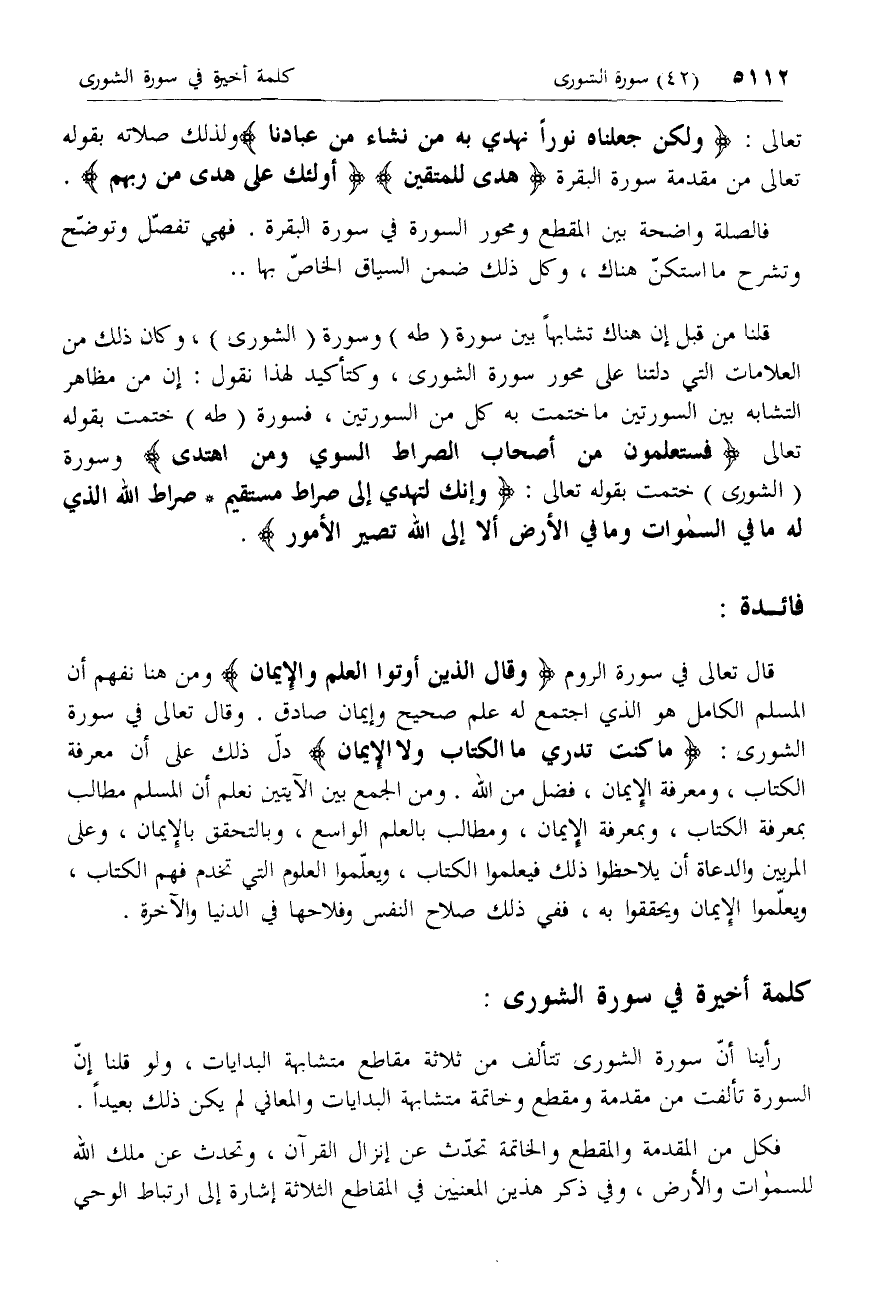 ٥١١٢ (٤٢) سورة الشورى كلمة أخيرة في سورة الشورى
تعالى : ﴿ ولكن جعلناه نوراً نهدي به من نشاء من عبادنا ﴾ ولذلك صلاته بقوله
تعالى من مقدمة سورة البقرة ﴿ هدى للمتقين ﴾ ﴿ أولئك على هدى من ربهم ﴾ .
فالصلة واضحة بين المقطع ومحور السورة في سورة البقرة . فهي تفصّل وتوضّح
وتشرح ما استكنّ هناك ، وكل ذلك ضمن السياق الخاصّ بها ..
قلنا من قبل إن هناك تشابهاً بين سورة ( طه ) وسورة ( الشورى ) ، وكان ذلك من
العلامات التي دلتنا على محور سورة الشورى ، وكتأكيد لهذا نقول : إن من مظاهر
التشابه بين السورتين ما ختمت به كل من السورتين ، فسورة ( طه ) ختمت بقوله
تعالى ﴿ فستعلمون من أصحاب الصراط السوي ومن اهتدى ﴾ وسورة
( الشورى ) ختمت بقوله تعالى : ﴿ وإنك لتهدي إلى صراط مستقيم * صراط الله الذي
له ما في السمٰوات وما في الأرض ألا إلى الله تصير الأمور ﴾ .
فائـدة :
قال تعالى في سورة الروم ﴿ وقال الذين أوتوا العلم والإيمان ﴾ ومن هنا نفهم أن
المسلم الكامل هو الذي اجتمع له علم صحيح وإيمان صادق . وقال تعالى في سورة
الشورى : ﴿ ما كنت تدري ما الكتاب ولا الإيمان ﴾ دلّ ذلك على أن معرفة
الكتاب ، ومعرفة الإيمان ، فضل من الله . ومن الجمع بين الآيتين نعلم أن المسلم مطالب
بمعرفة الكتاب ، وبمعرفة الإيمان ، ومطالب بالعلم الواسع ، وبالتحقق بالإيمان ، وعلى
المربين والدعاة أن يلاحظوا ذلك فيعلموا الكتاب ، ويعلّموا العلوم التي تخدم فهم الكتاب ،
ويعلّموا الإيمان ويحققوا به ، ففي ذلك صلاح النفس وفلاحها في الدنيا والآخرة .
كلمة أخيرة في سورة الشورى :
رأينا أنّ سورة الشورى تتألف من ثلاثة مقاطع متشابهة البدايات ، ولو قلنا إنّ
السورة تألفت من مقدمة ومقطع وخاتمة متشابهة البدايات والمعاني لم يكن ذلك بعيداً .
فكل من المقدمة والمقطع والخاتمة تحدّث عن إنزال القرآن ، وتحدث عن ملك الله
للسمٰوات والأرض ، وفي ذكر هذين المعنيين في المقاطع الثلاثة إشارة إلى ارتباط الوحي